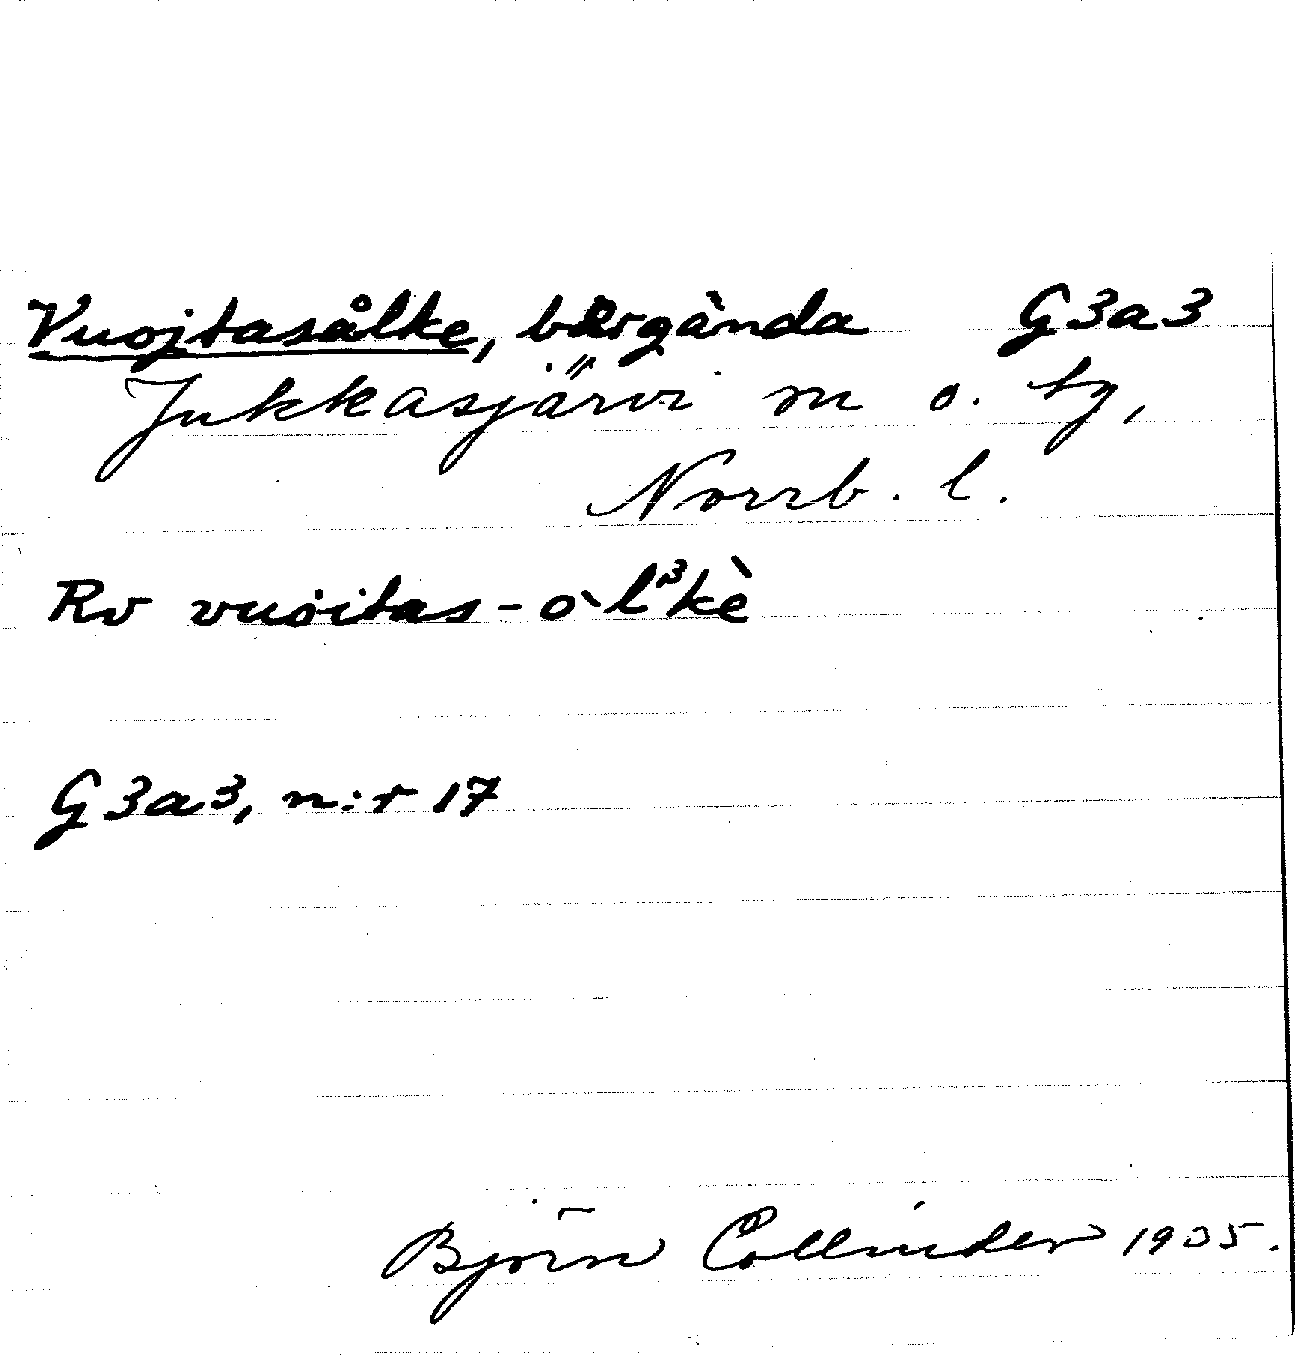 Vuojtasålke, bergända G3a3
Jukkasjärvi m o. tg,
Norrb. l.
Rv vuoitas-òl³kè
G3a3, n:r 17
Björn Collinder 1935.